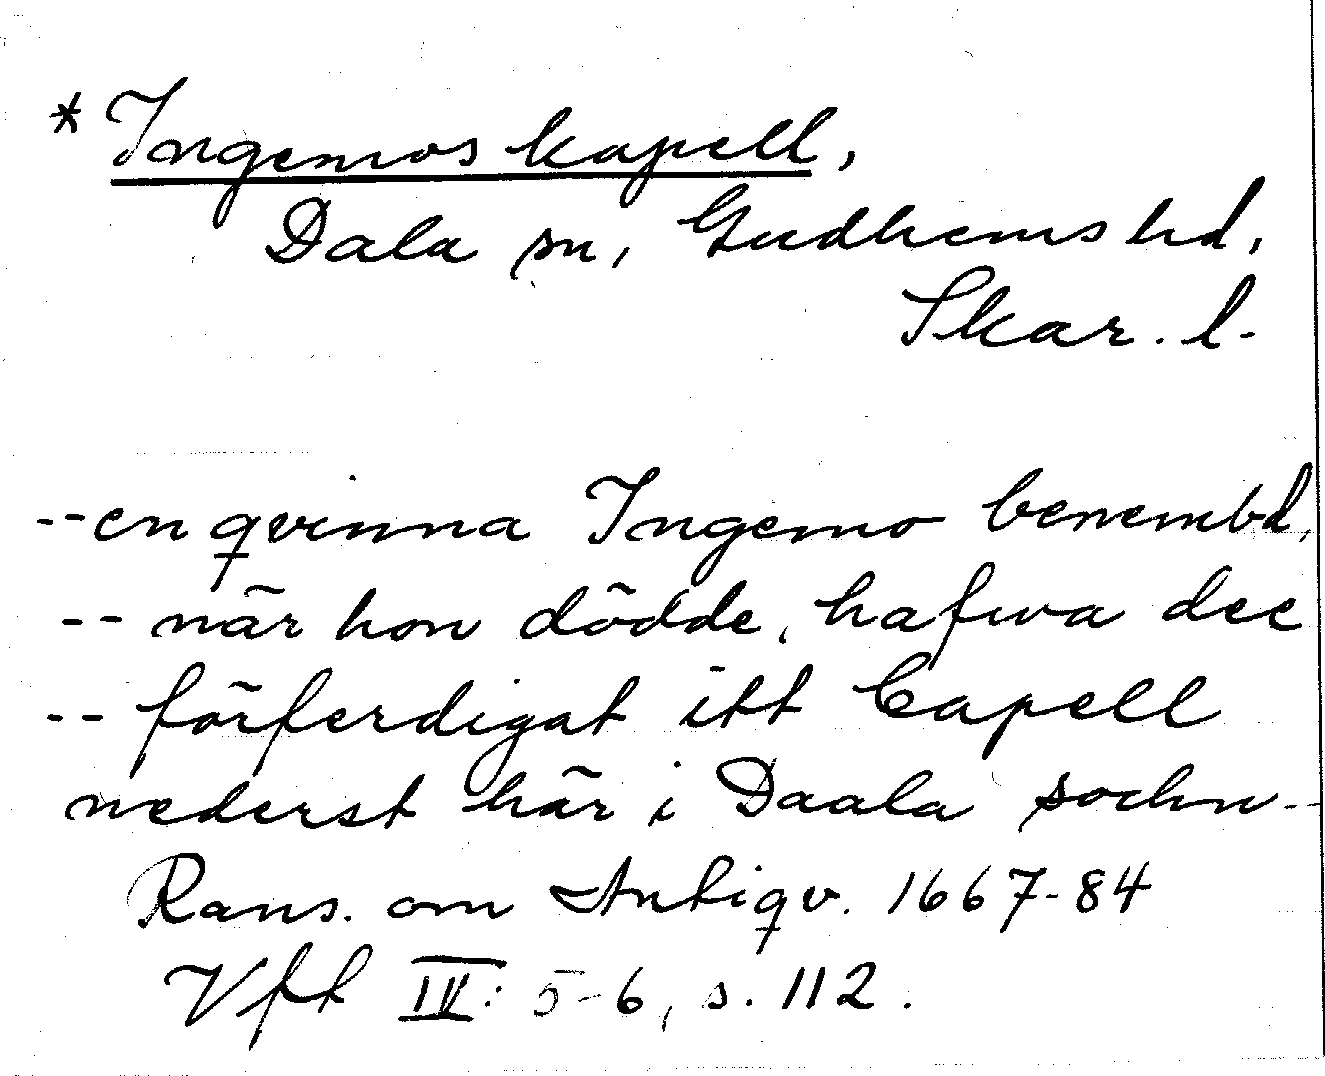 * Ingemos kapell,
Dala sn, Gudhems hd,
Skar. l.
-- en qvinna Ingemo benembd,
-- när hon dödde, hafwa dee
-- förferdigat itt Capell
nederst här i Daala sochn--
Rans. om Antiqv. 1667-84
Vft IV: 5-6, s. 112.